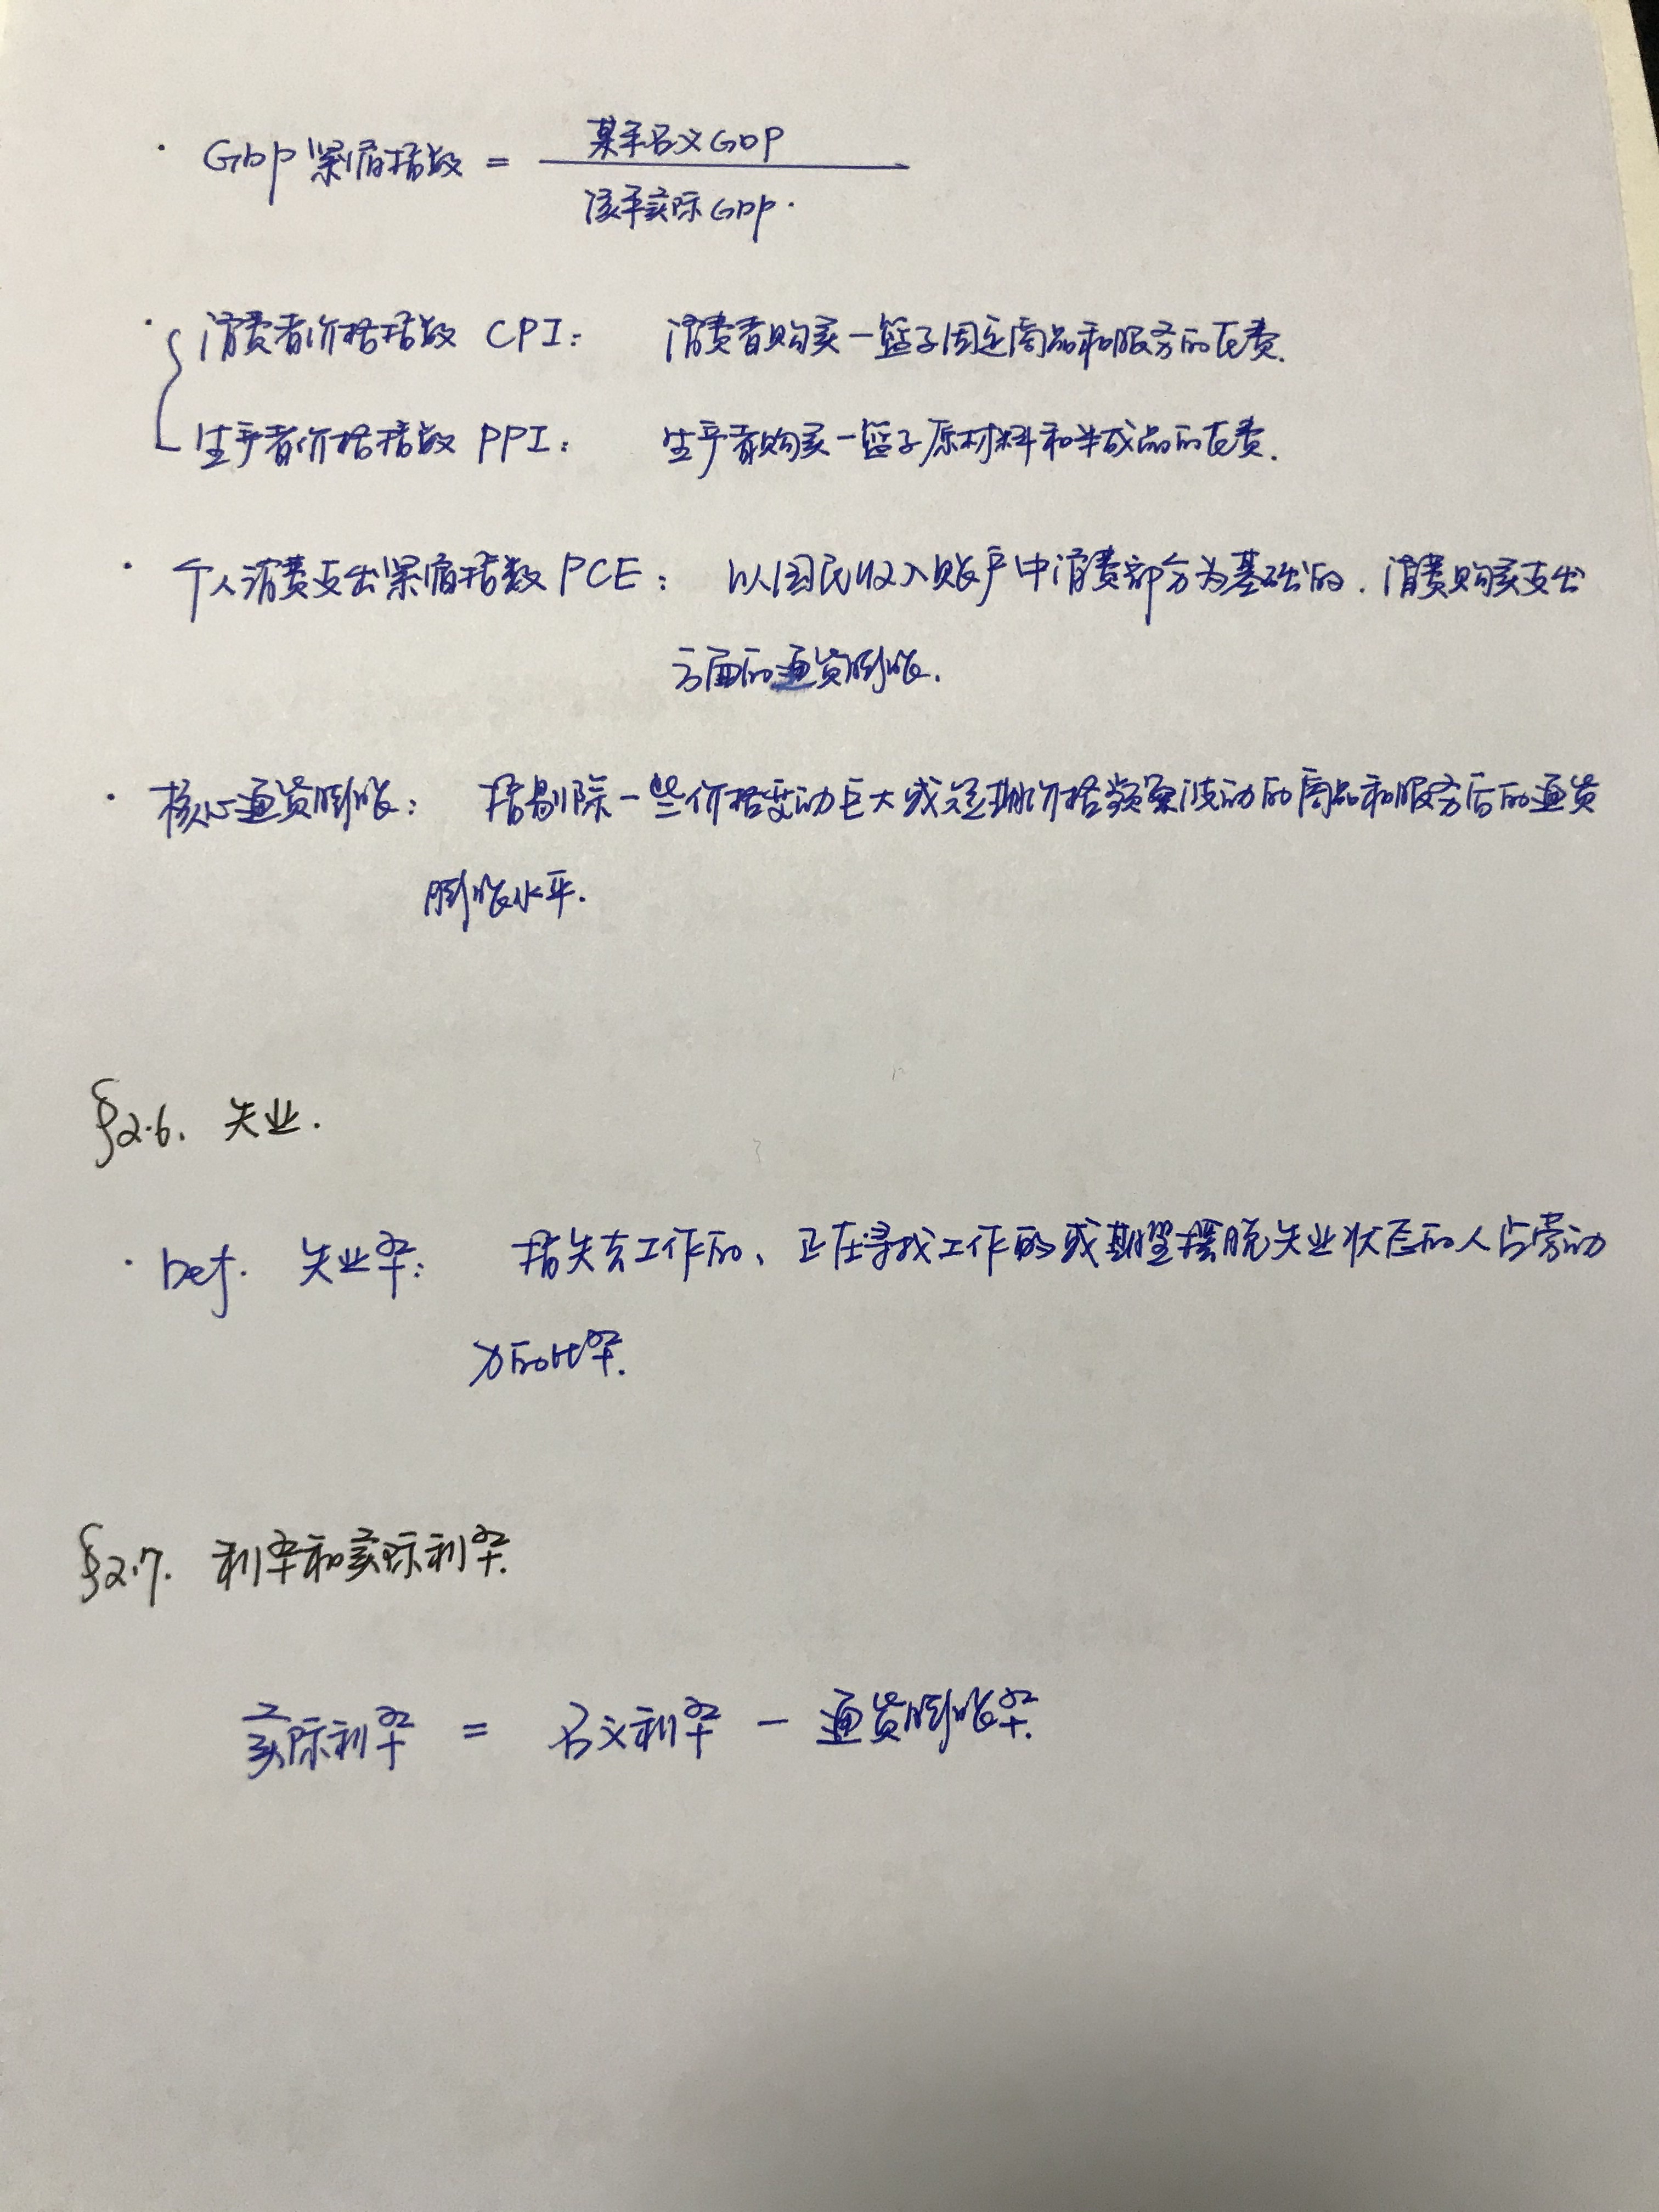 · GDP紧缩指数 = 某年名义GDP
该年实际GDP.
· 消费者价格指数 CPI: 消费者购买一篮子固定商品和服务的花费.
生产者价格指数 PPI: 生产者购买一篮子原材料和半成品的花费.
· 个人消费支出紧缩指数 PCE: 以国民收入账户中消费部分为基础的. 消费购买支出
方面的通货膨胀.
· 核心通货膨胀: 指剔除一些价格变动巨大或定期价格频繁波动的商品和服务后的通货
膨胀水平.
§2.6. 失业.
· Def. 失业率: 指失去工作的、正在寻找工作的或期望摆脱失业状态的人占劳动
力的比率.
§2.7. 利率和实际利率.
实际利率 = 名义利率 - 通货膨胀率.